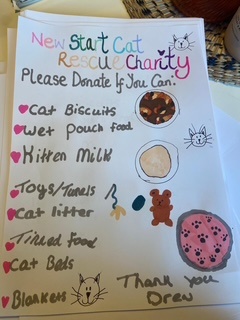 New Start Cat
Rescue Charity
Please Donate If You Can:
Cat Biscuits
Wet Pouch food
Kitten Milk
Toys/Tunels
Cat litter
Tinned food
Cat Beds
Blankets
Thank you
Drew